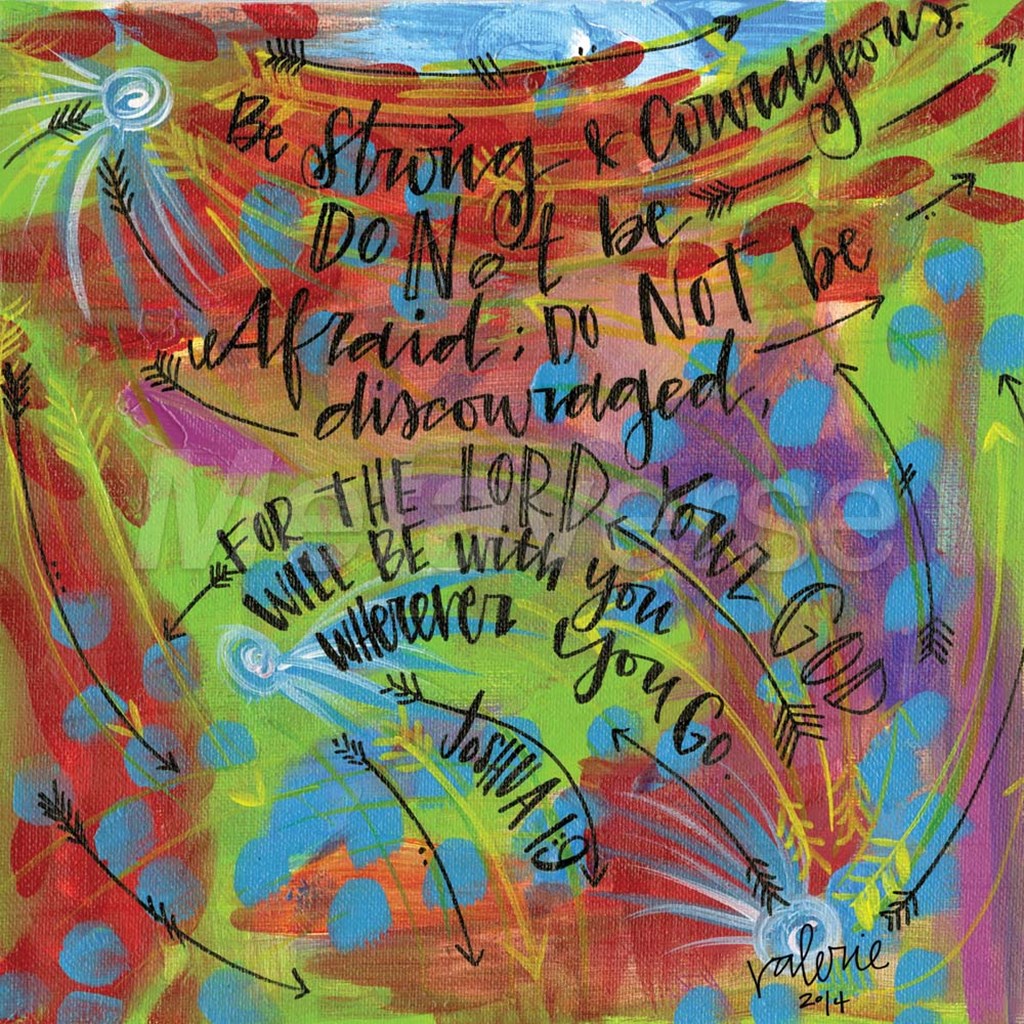 Be Strong & Courageous.
Do Not be
Afraid; Do Not be
discouraged,
FOR THE LORD YOUR GOD
WILL BE with you
WHEREVER YOU GO.
JOSHUA 1:9
valerie
2014
Metaverse